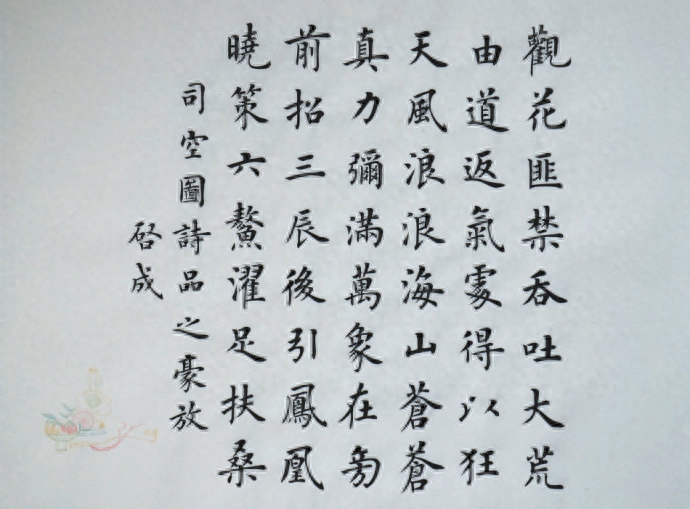 觀花匪禁吞吐大荒
由道返氣處得以狂
天風浪浪海山蒼蒼
真力彌滿萬象在旁
前招三辰後引鳳凰
曉策六鰲濯足扶桑
司空圖詩品之豪放
啓成